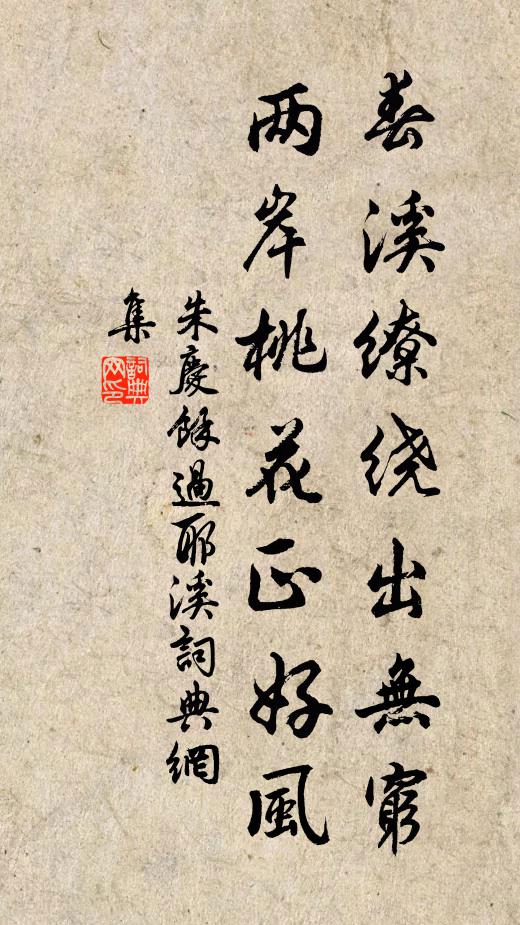 春溪缭绕出無窮
两岸桃花正好風
朱慶餘過耶溪詞典網
集
詞典
网印